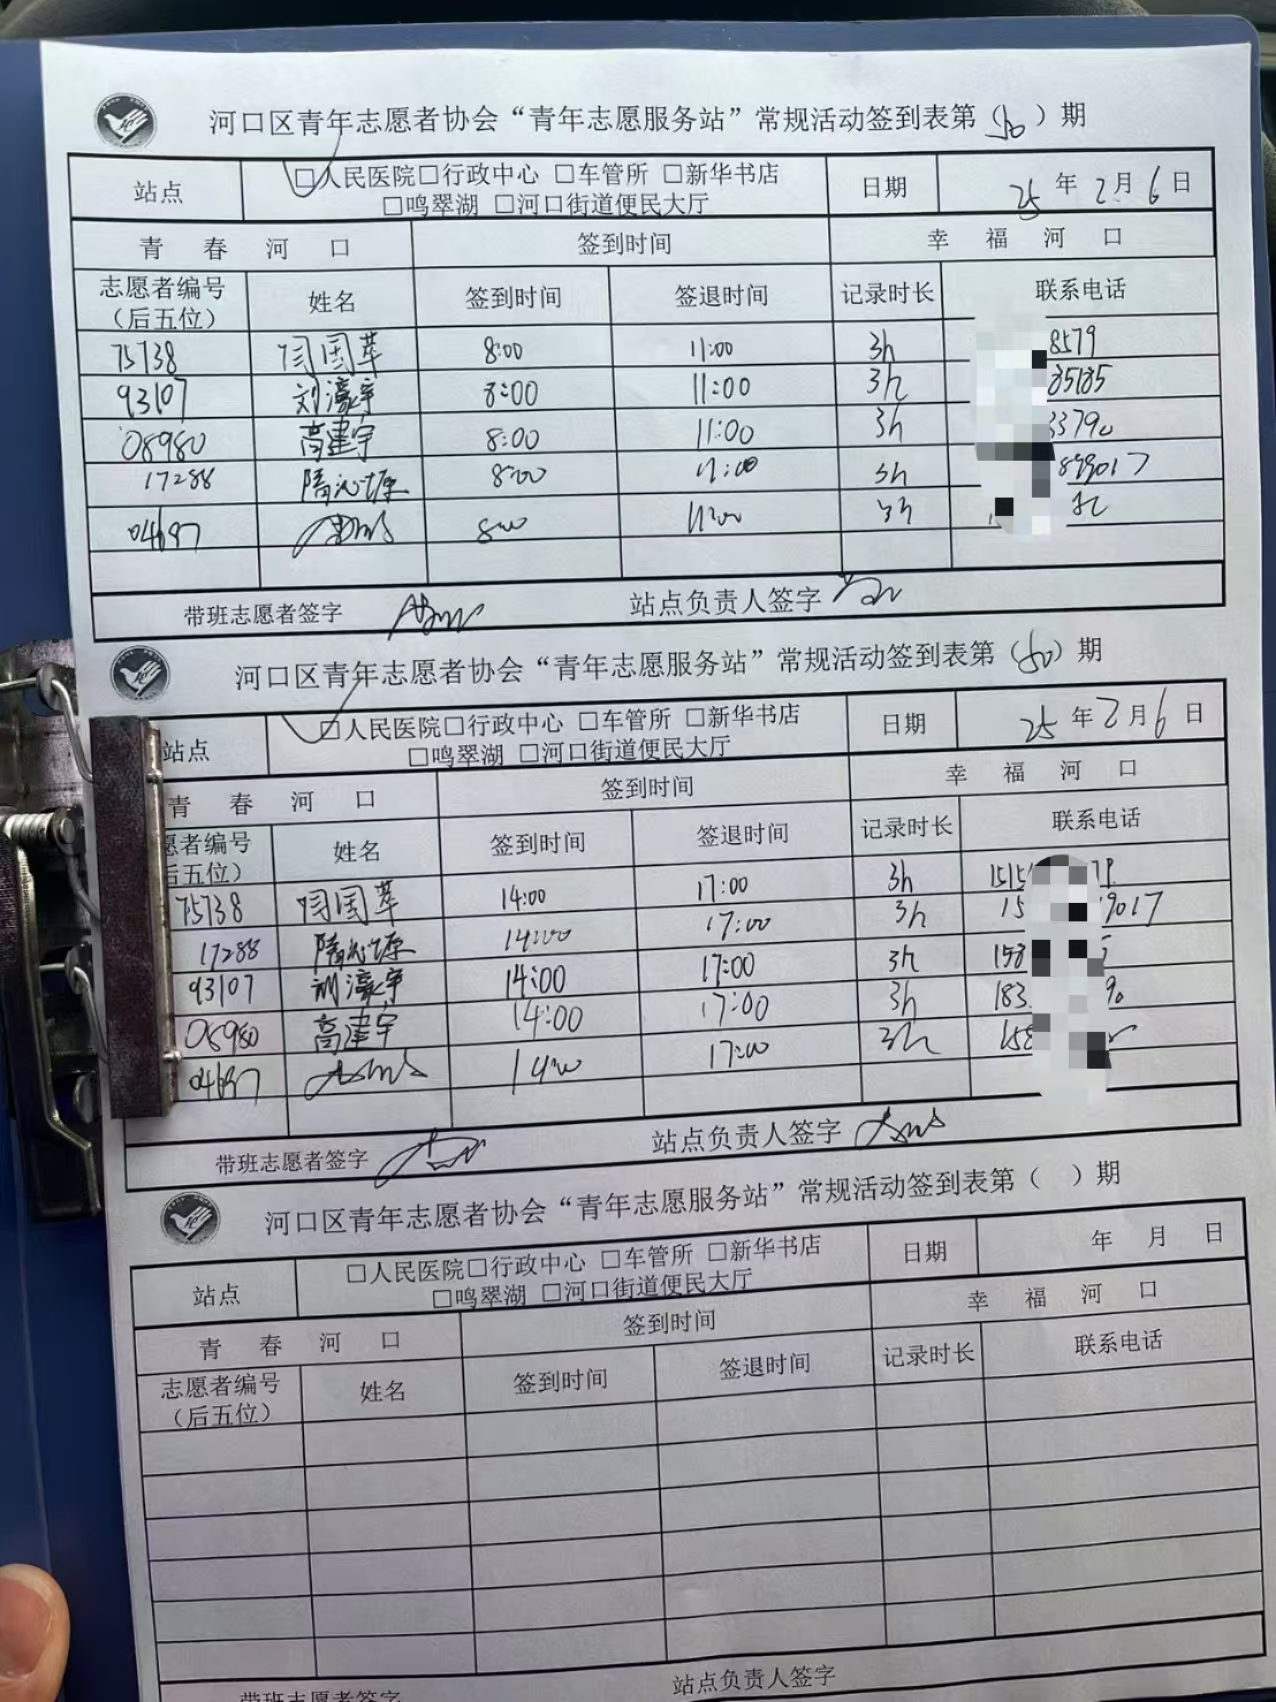 河口区青年志愿者协会“青年志愿服务站”常规活动签到表第（50）期
站点 □人民医院□行政中心 □车管所 □新华书店 日期 25年2月6日
□鸣翠湖 □河口街道便民大厅
青 春 河 口 签到时间 幸 福 河 口
志愿者编号（后五位） 姓名 签到时间 签退时间 记录时长 联系电话
75738 闫国苹 8:00 11:00 3h 8579
93107 刘濠宇 8:00 11:00 3h 85185
08980 高建宇 8:00 11:00 3h 3790
17288 隋沁塬 8:00 11:00 3h 899017
04697 8:00 11:00 3h
带班志愿者签字 站点负责人签字
河口区青年志愿者协会“青年志愿服务站”常规活动签到表第（50）期
站点 □人民医院□行政中心 □车管所 □新华书店 日期 25年2月6日
□鸣翠湖 □河口街道便民大厅
青 春 河 口 签到时间 幸 福 河 口
愿者编号 后五位） 姓名 签到时间 签退时间 记录时长 联系电话
75738 闫国苹 14:00 17:00 3h 1515
17288 隋沁塬 14:00 17:00 3h 15 9017
93107 刘濠宇 14:00 17:00 3h 158
08980 高建宇 14:00 17:00 3h 183 90
04697 14:00 17:00 3h 158
带班志愿者签字 站点负责人签字
河口区青年志愿者协会“青年志愿服务站”常规活动签到表第（ ）期
站点 □人民医院□行政中心 □车管所 □新华书店 日期 年 月 日
□鸣翠湖 □河口街道便民大厅
青 春 河 口 签到时间 幸 福 河 口
志愿者编号（后五位） 姓名 签到时间 签退时间 记录时长 联系电话
带班志愿者签字 站点负责人签字